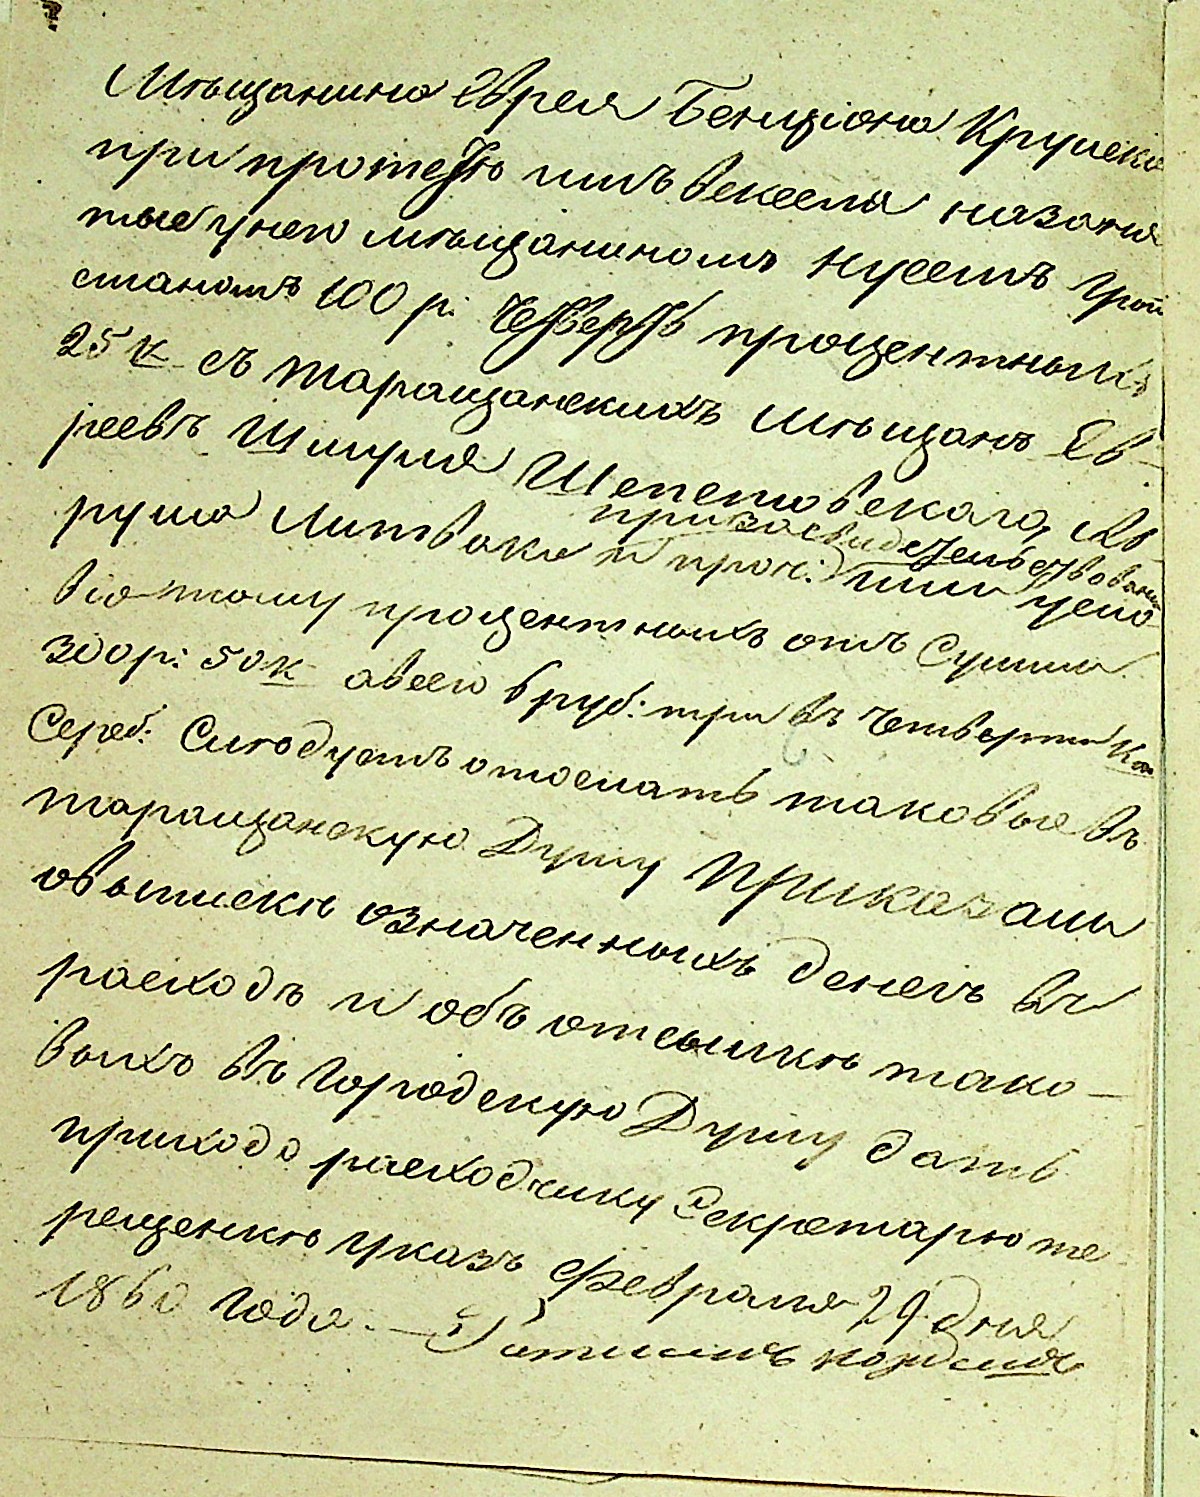 Мѣщанина Еврея Бенціона Крупска
при протестѣ имъ векселя на взаня
тые у него мѣщаниномъ Нусемъ
станомъ 100 р: четверть процентныхъ
25 к съ таращанскихъ мѣщанъ Ев-
реевъ Шмуля Шепетовскаго, Аб-
при засвидетельствованіи
рума Литвака и проч: ими усло
віо тому процентныхъ отъ суммы
300 р: 50 к а всего 6 руб: три въ четверти ко
Сереб: Слѣдуетъ отослать таковые въ
таращанскую Думу Приказали
о выпискѣ означенныхъ денегъ въ
расходъ и объ отсылкѣ тако-
выхъ въ Городскую Думу дать
приходо расходчику Секретарю Те
рещенкѣ указъ Февраля 29 дня
1860 года.